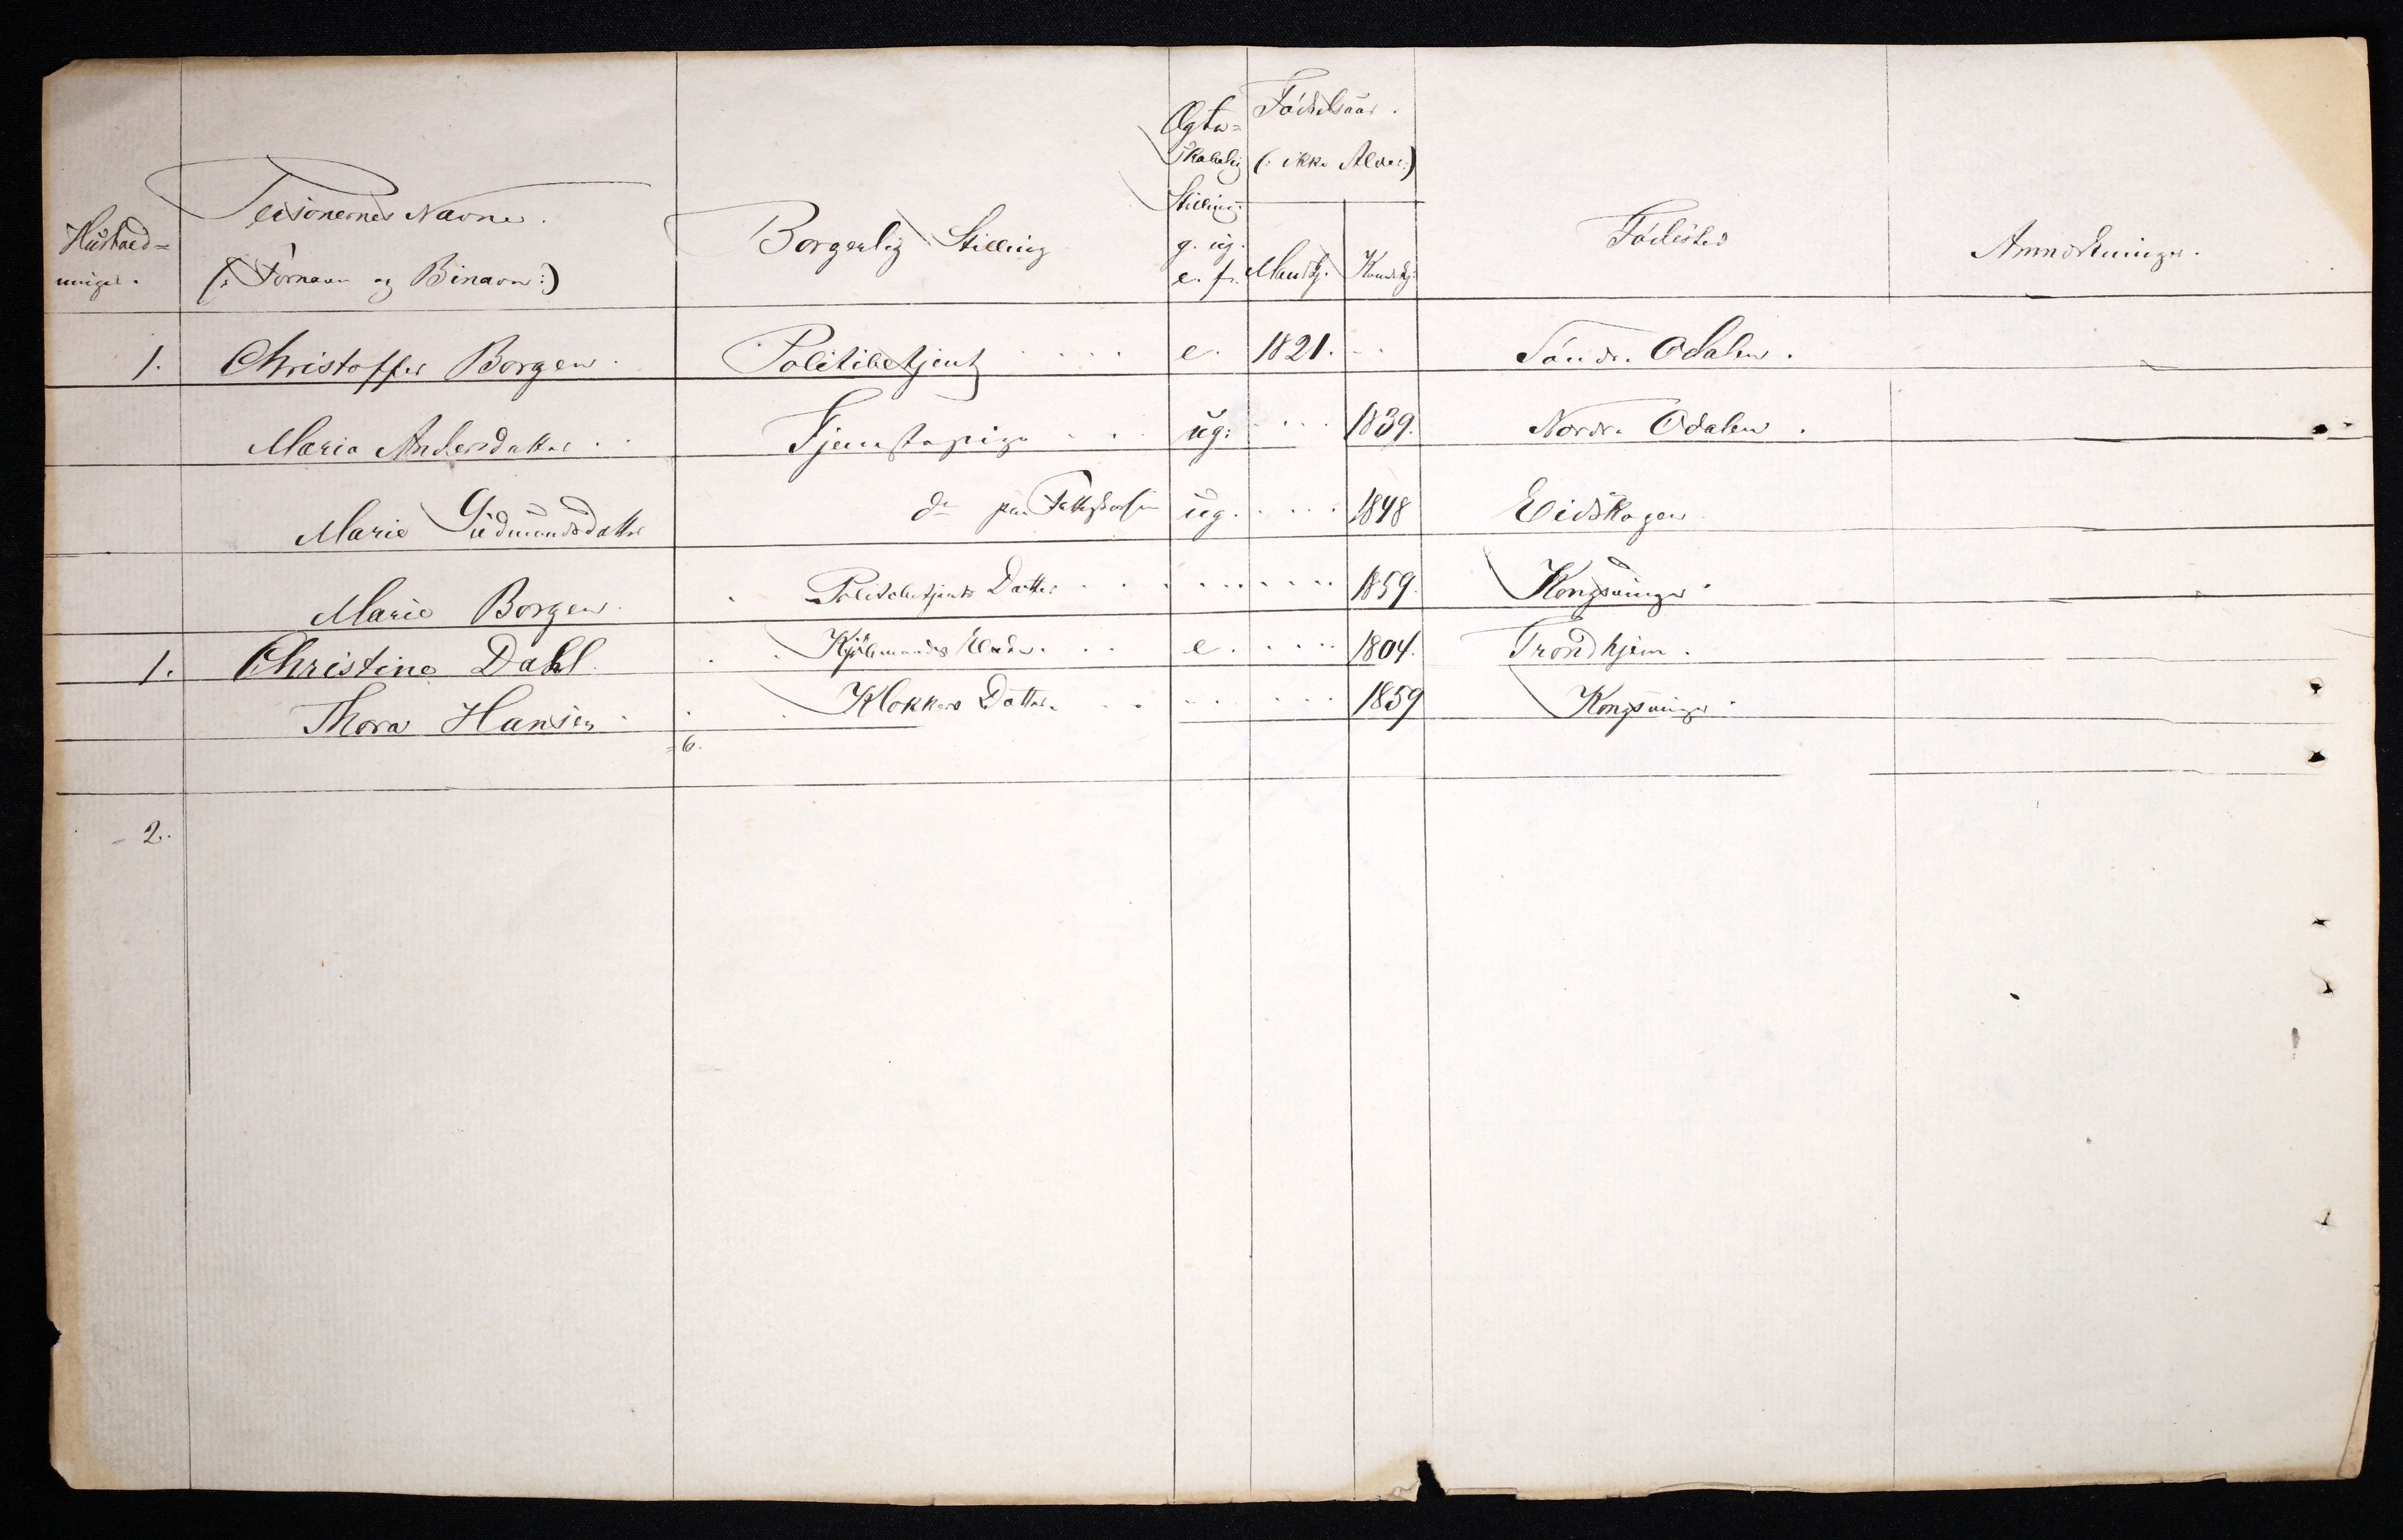 Hushold=
ninger.
Personernes Navne.
(: Fornavn og Binavn :)
Borgerlig Stilling
Ægte=
skabelig
Stilling.
g. ug.
e. f.
Fødselsaar.
(: ikke Alder :)
Mandkj.
Kvindekj.
Fødested
Anmerkninger.
1. Christoffer Borgen. Politibetjent e. 1821. Søndre Odalen.
Maria Andersdatter Tjenestepige ug. 1839. Nordre Odalen.
Marie Gudmundsdatter do paa ug. 1848 Eidskogen
Marie Borgen. Politibetjents Datter 1859. Kongsvinger
1. Christine Dahl. Kjøbmands Enke. e. 1804. Trondhjem.
Thora Hansen Klokkers Datter. 1859 Kongsvinger
= 6.
= 2.